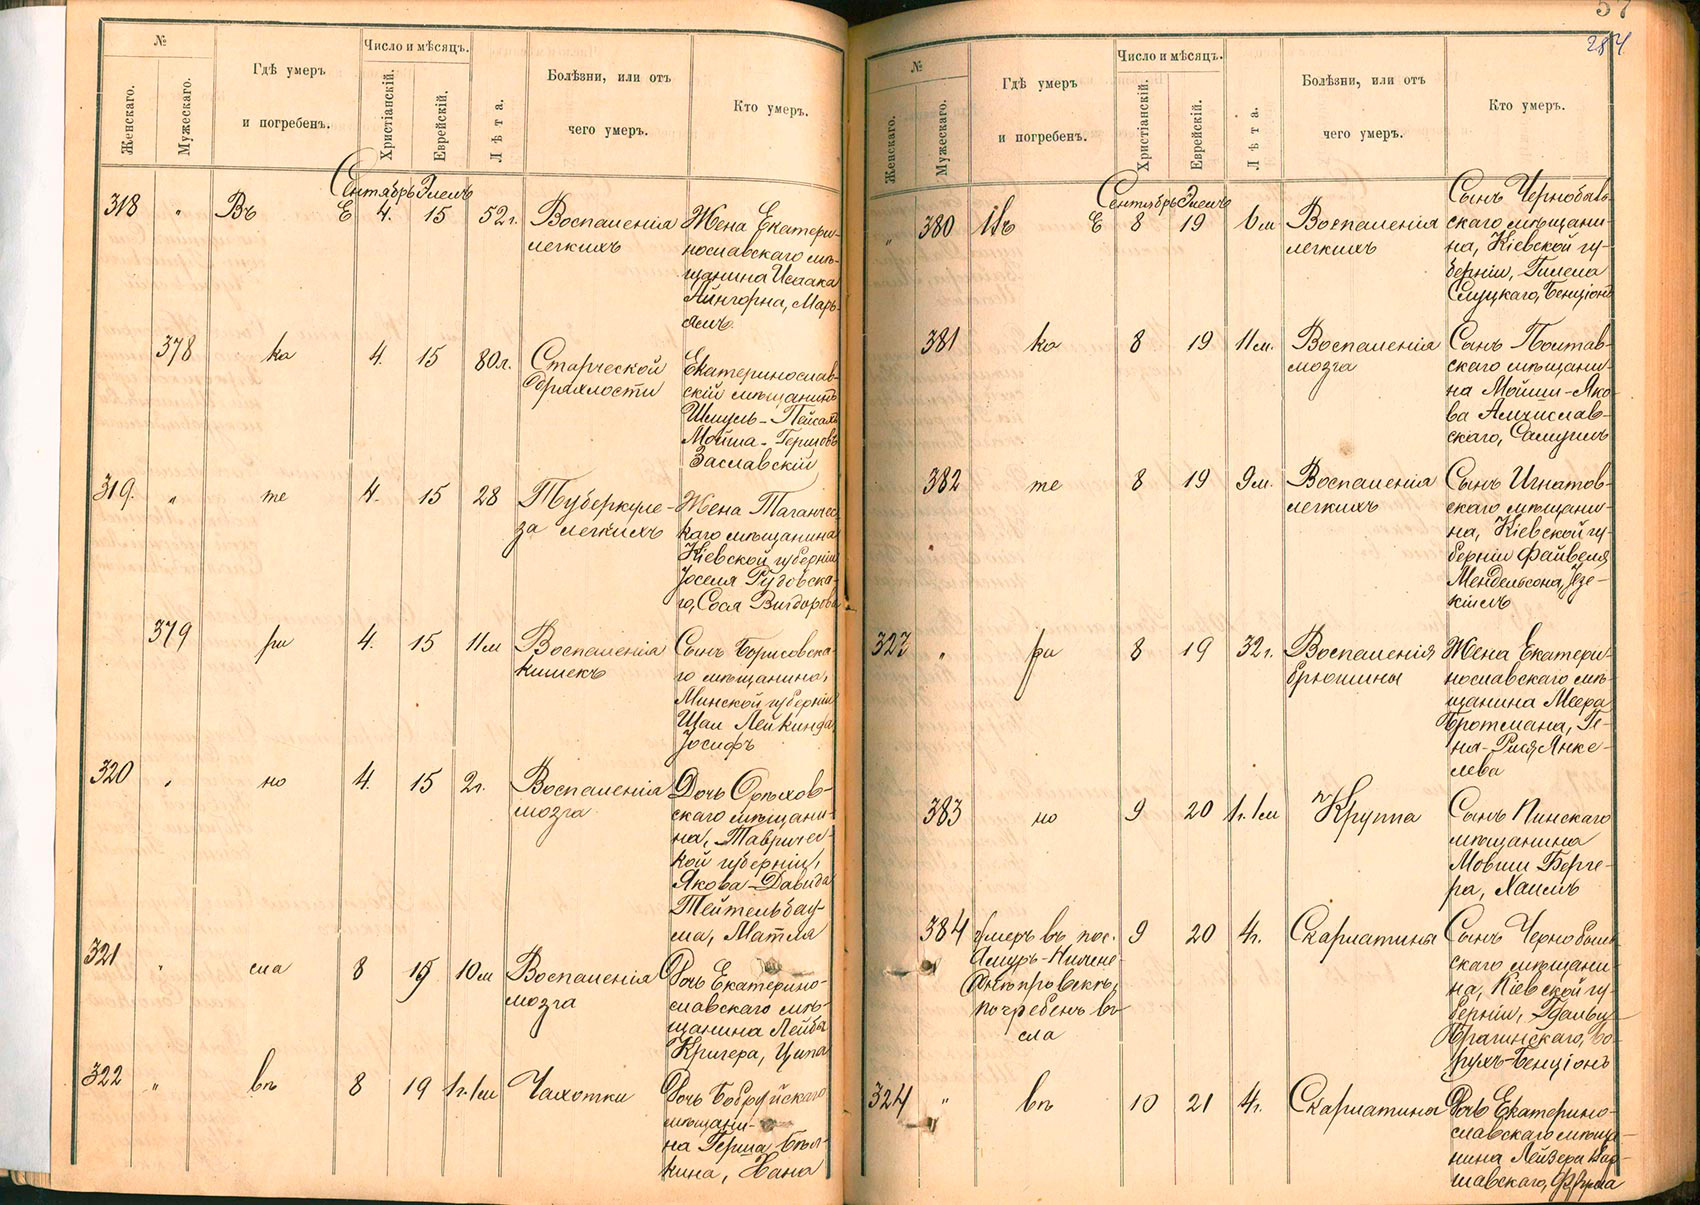 №
Женскаго.
Мужескаго.
Гдѣ умеръ
и погребенъ.
Число и мѣсяцъ.
Христіанскій.
Еврейскій.
Лѣта.
Болѣзни, или отъ
чего умеръ.
Кто умеръ.
Сентябрь Элелъ
318 " Въ Е 4. 15 52 г. Воспаленія
легкихъ
Жена Екатери-
нославскаго мѣ-
щанина Исаака
Айнгорна, Марь-
ямъ.
378 ка 4. 15 80 л. Старческой
дряхлости
Екатеринослав-
скій мѣщанинъ
Шмуль-Пейсахъ
Мойша-Гершовъ
Заславскій
319. " те 4. 15 28 Туберкуле-
за легкихъ
Жена Таганчес-
каго мѣщанина
Кіевской губерніи
Іоселя Рудовска-
го, Сося Вигдорова
379 ри 4. 15 11 м Воспаленія
кишекъ
Сынъ Борисовска-
го мѣщанина,
Минской губерніи
Шаи Лейкинда,
Іосифъ
320 " но 4. 15 2 г. Воспаленія
мозга
Дочь Орѣхов-
скаго мѣщани-
на, Тавричес-
кой губерніи,
Якова-Давида
Тейтельбау-
ма, Матля
321 " сла 8 19 10 м Воспаленія
мозга
Дочь Екатерино-
славскаго мѣ-
щанина Лейбы
Кригера, Ципа
322 " въ 8 19 1 г. 1 м Чахотки
Дочь Бобруйскаго
мѣщани-
на Герша Бѣл-
кина, Хана
57
284
№
Женскаго.
Мужескаго.
Гдѣ умеръ
и погребенъ.
Число и мѣсяцъ.
Христіанскій.
Еврейскій.
Лѣта.
Болѣзни, или отъ
чего умеръ.
Кто умеръ.
Сентябрь Элелъ
" 380 Въ Е 8 19 6 м Воспаленія
легкихъ
Сынъ Чернобыль-
скаго мѣщани-
на, Кіевской гу-
берніи, Гилела
Слуцкаго, Бенціонъ
381 ка 8 19 11 м. Воспаленія
мозга
Сынъ Полтав-
скаго мѣщани-
на Мойши-Яко-
ва Амчислав-
скаго, Самуилъ
382 те 8 19 9 м. Воспаленія
легкихъ
Сынъ Игнатов-
скаго мѣщани-
на, Кіевской гу-
берніи Файвеля
Мендельсона, Іезе-
кіилъ
323 " ри 8 19 32 г. Воспаленія
брюшины
Жена Екатери-
нославскаго мѣ-
щанина Меера
Бротмана, Ге-
ня-Рися Янке-
лева
383 но 9 20 1 г. 1 м Круппа
Сынъ Пинскаго
мѣщанина
Мовши Берге-
ра, Хаимъ
384 Умеръ въ пос.
Амуръ-Нижне-
днѣпровскъ,
погребенъ въ
сла
9 20 4 г. Скарлатины
Сынъ Чернобыль-
скаго мѣщани-
на, Кіевской гу-
берніи, Гдалья
Брагинскаго, Бо-
рухъ-Бенціонъ
324 " въ 10 21 4 г. Скарлатины
Дочь Екатерино-
славскаго мѣща-
нина Лейзера Вар-
шавскаго, Фрума